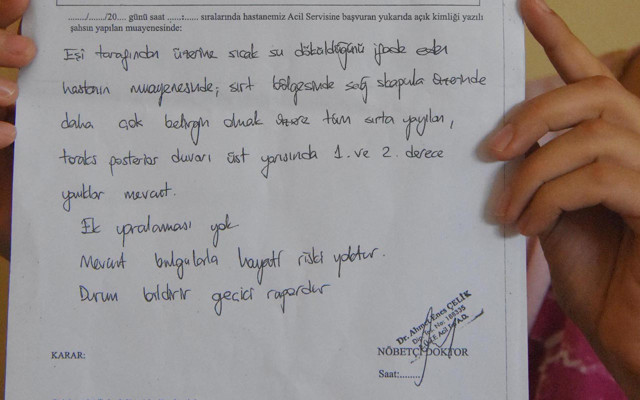 ......./......./20.... günü saat ......:...... sıralarında hastanemiz Acil Servisine başvuran yukarıda açık kimliği yazılı
şahsın yapılan muayenesinde:
Eşi tarafından üzerine sıcak su döküldüğünü ifade eden
hastanın muayenesinde; sırt bölgesinde sağ skapula üzerinde
daha çok belirgin olmak üzere tüm sırta yayılan,
toraks posterior duvarı üst yarısında 1. ve 2. derece
yanıklar mevcut.
Ek yaralanması yok
Mevcut bulgularla hayati riski yoktur.
Durum bildirir geçici rapordur
Dr. Ahmet Enes ÇELİK
KARAR:
NÖBETÇİ DOKTOR
Saat:........